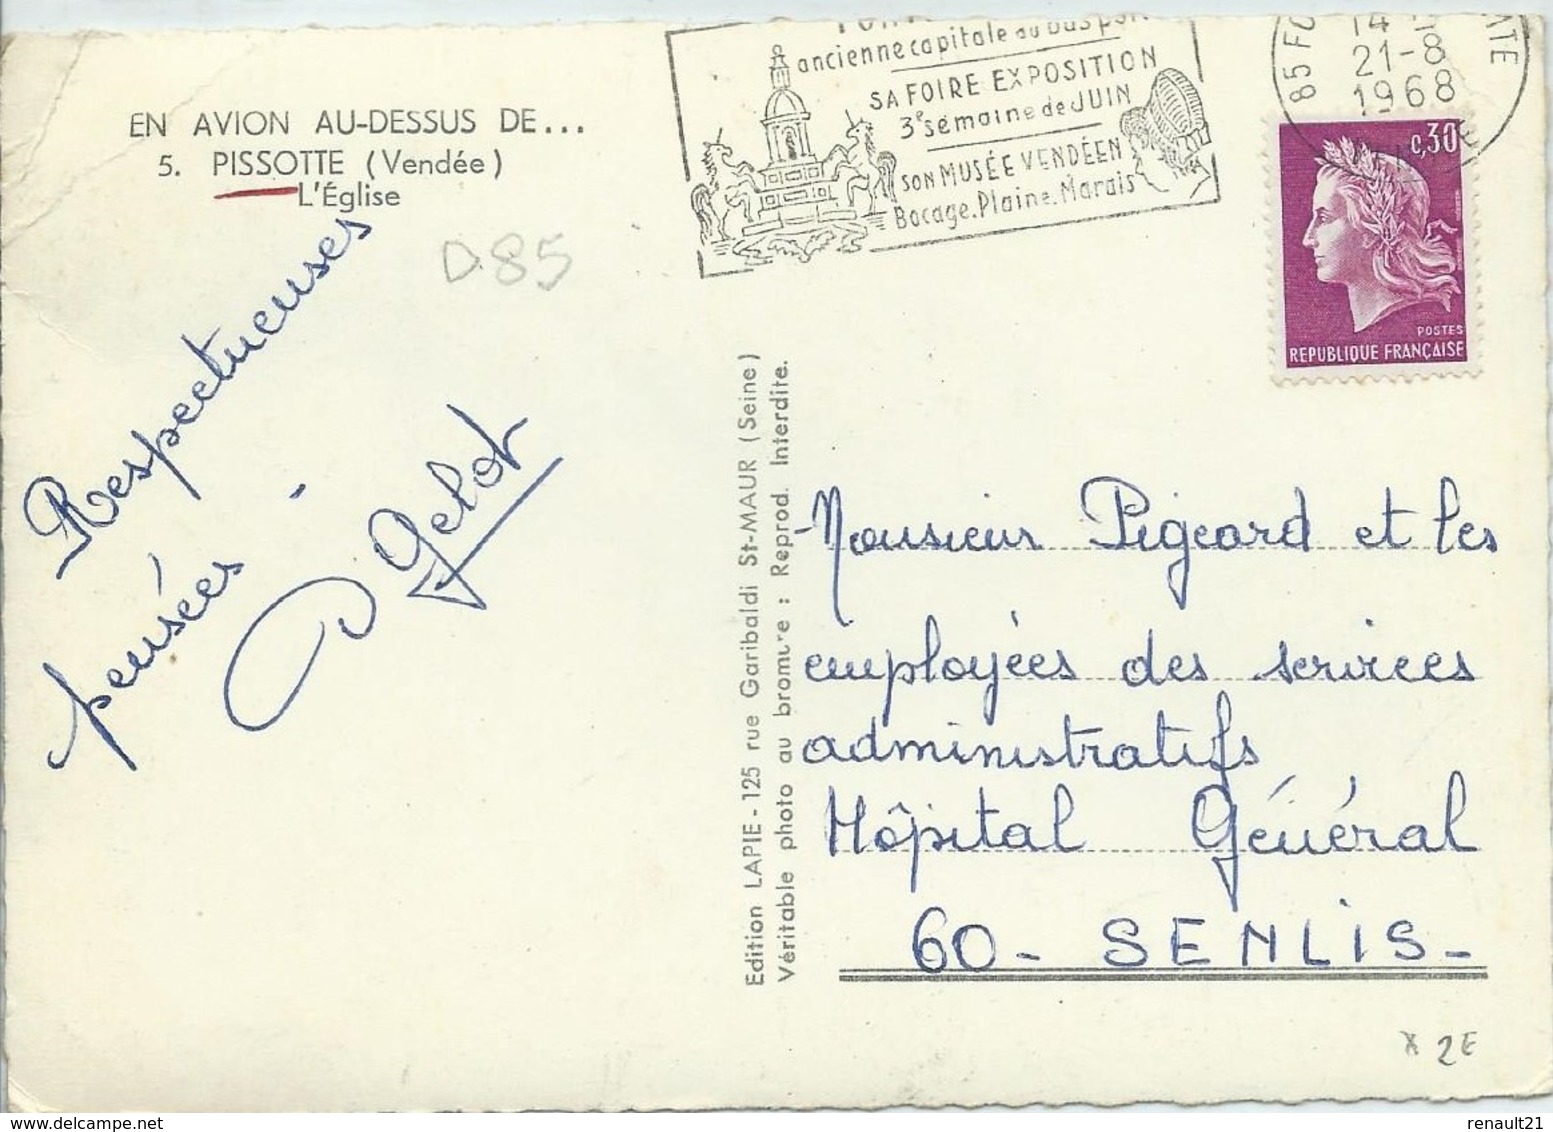 EN AVION AU-DESSUS DE...
5. PISSOTTE (Vendée)
L'Église
D.85
Respectueuses
pensées -
Gelot
ancienne capitale du bas poi
SA FOIRE EXPOSITION
3e semaine de JUIN
SON MUSÉE VENDÉEN
Bocage. Plaine. Marais
14
21-8
1968
0,30
POSTES
REPUBLIQUE FRANÇAISE
Edition LAPIE - 125 rue Garibaldi St-MAUR (Seine)
Véritable photo au bromure : Reprod. Interdite.
Monsieur Pigeard et les
employées des services
administratifs
Hôpital Général
60 - SENLIS -
x 2E
www.delcampe.net
renault21